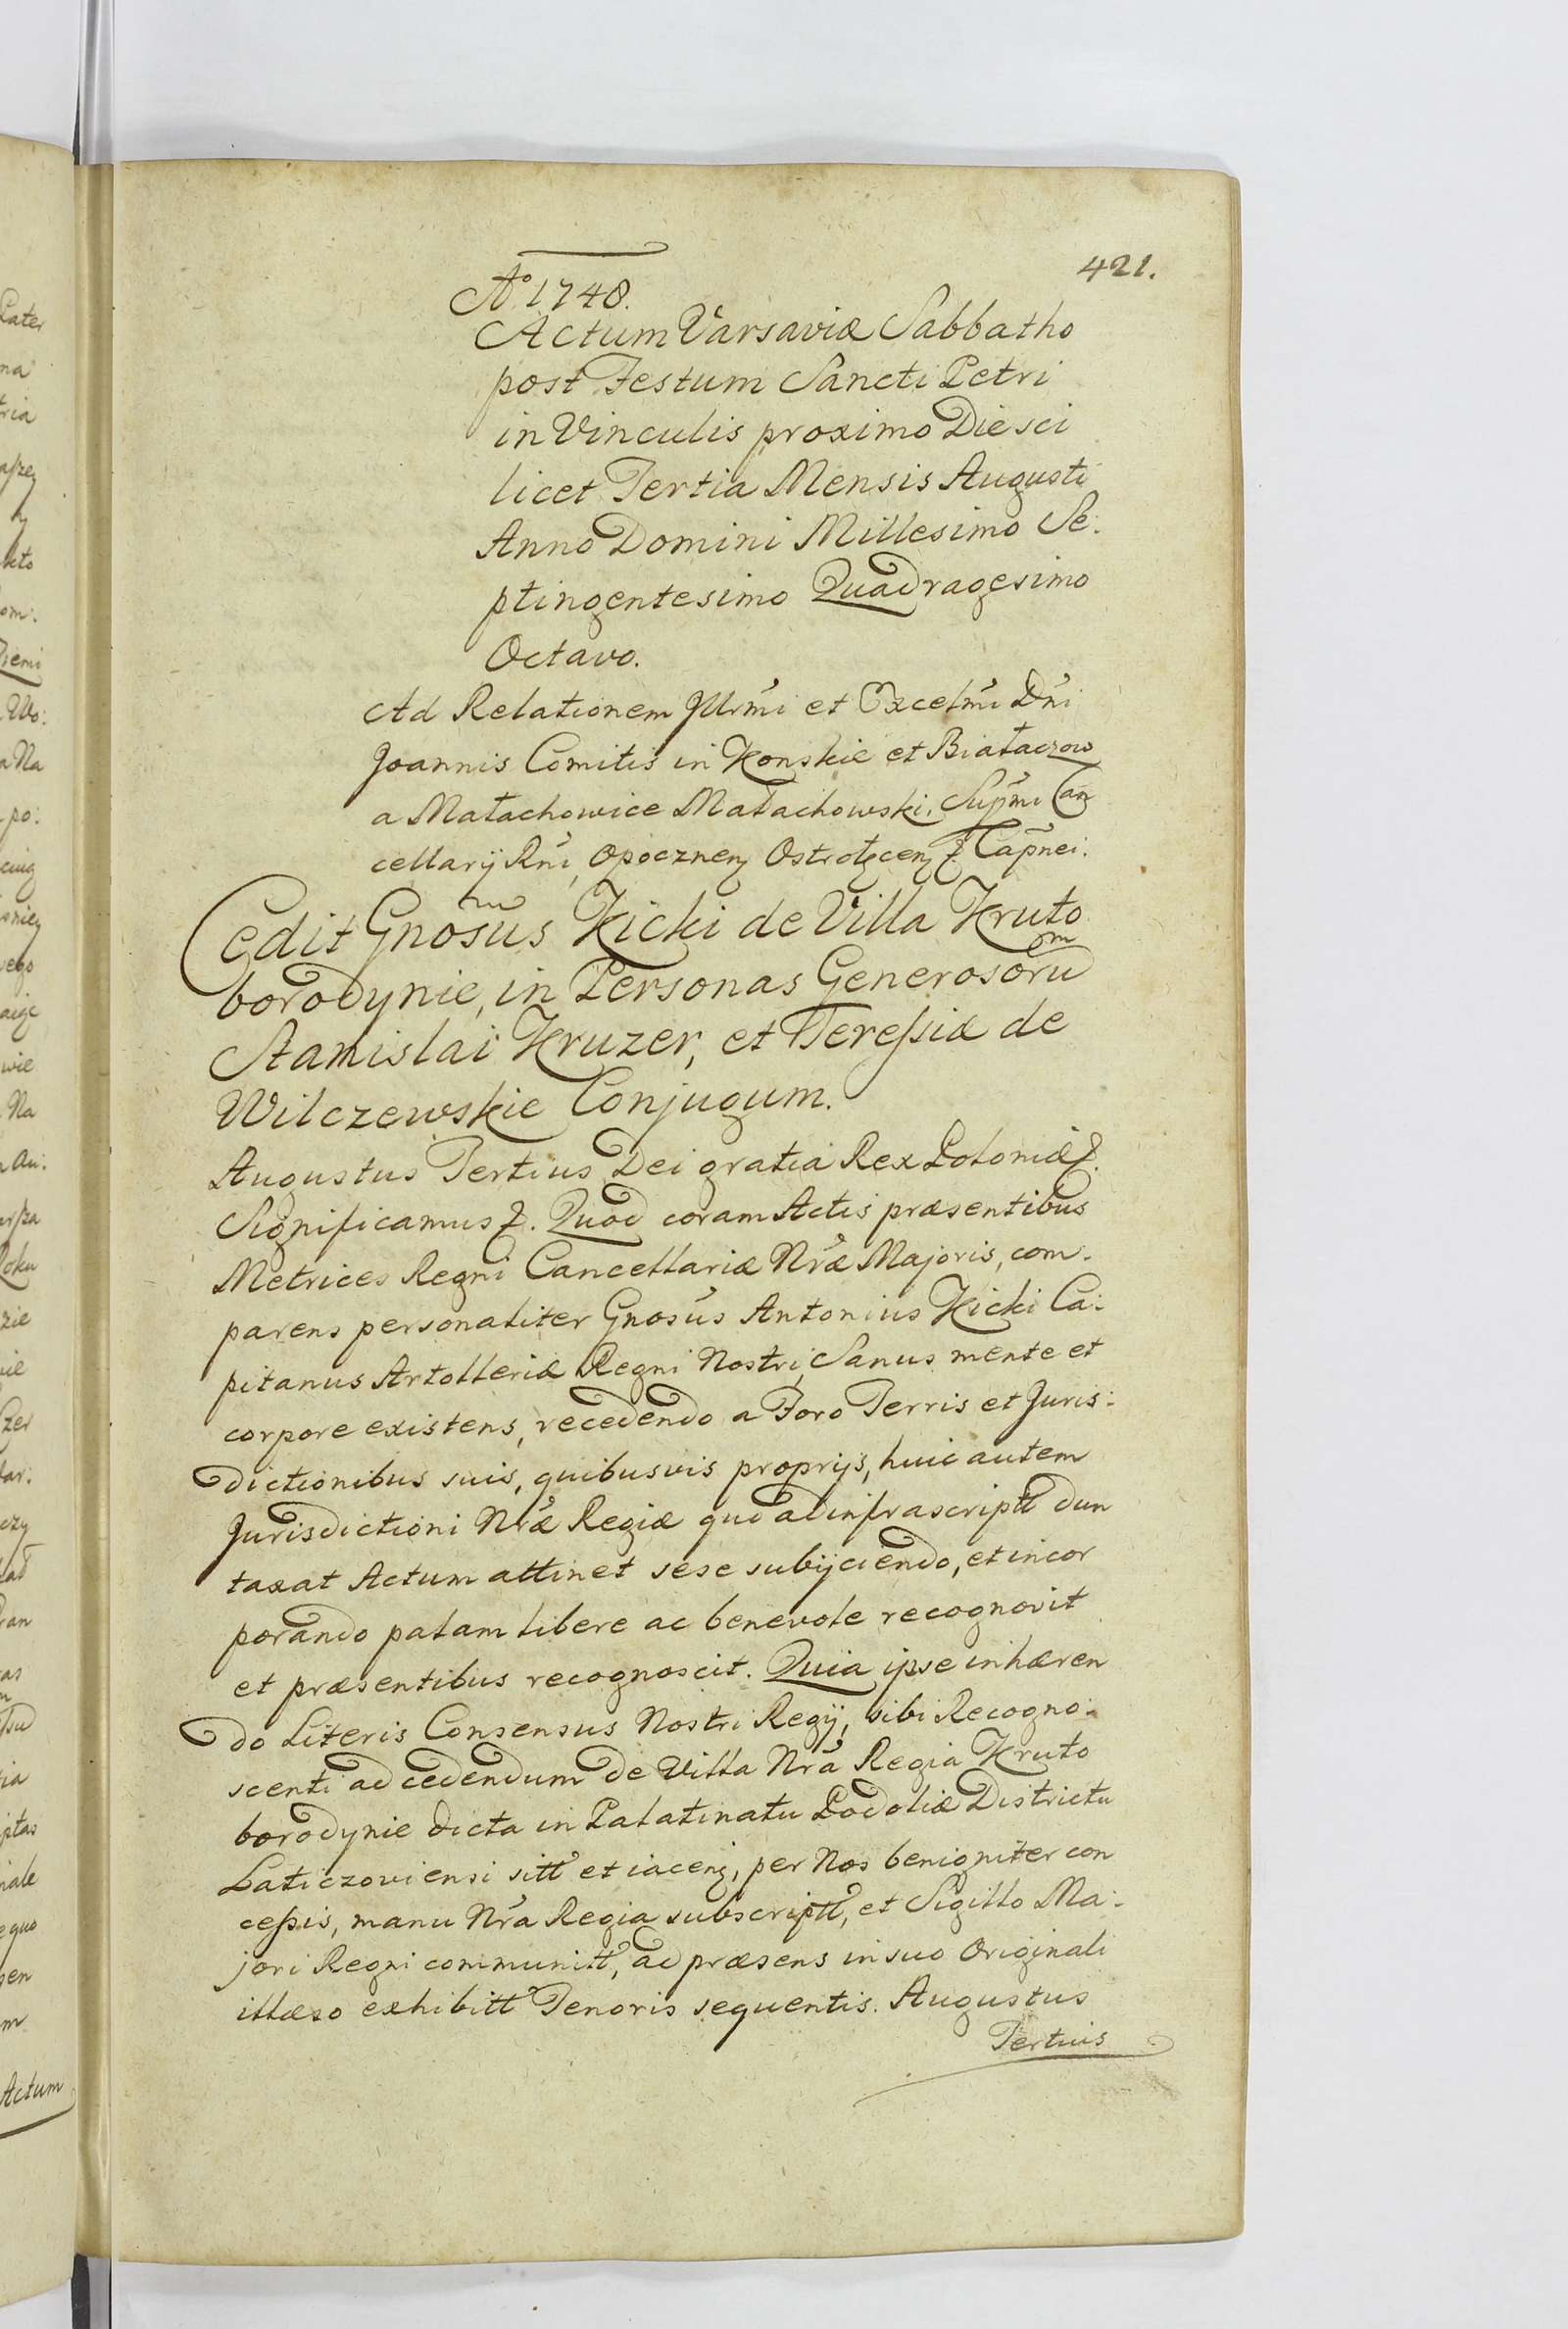 421.
Aº 1748.
Actum Varsaviæ Sabbatho
post Festum Sancti Petri
in Vinculis proximo Die sci
licet Tertia Mensis Augusti
Anno Domini Millesimo Se:
ptingentesimo Quadragesimo
Octavo.
Ad Relationem Jllrmi et Excelmi Dni
Joannis Comitis in Konskie et Białaczow
a Małachowice Małachowski, Supmi Can
cellarij Rni, Opocznen Ostrołęcen &. Capnei.
Cedit Gnosus Kicki de Villa Kruto
borodynie, in Personas Generosorum
Stanislai Kruzer, et Tereſsiæ de
Wilczewskie Conjugum.
Augustus Tertius Dei gratia Rex Poloniæ &.
Significamus &. Quod coram Actis præsentibus
Metrices Regni Cancellariæ Nræ Majoris, com:
parens personaliter Gnosus Antonius Kicki Ca:
pitanus Artolleriæ Regni Nostri, Sanus mente et
corpore existens, recedendo a Foro Terris et Juris:
dictionibus suis, quibusvis proprijs, huic autem
Jurisdictioni Nræ Regiæ quo ad infrascriptt dun
taxat Actum attinet sese subijciendo, et incor
porando palam libere ac benevole recognovit
et præsentibus recognoscit. Quia ipse inhæren
do Literis Consensus Nostri Regij, sibi Recogno:
scenti ad cedendum de Villa Nra Regia Kruto
borodynie dicta in Palatinatu Podoliæ Districtu
Laticzoviensi sitt et iacen, per Nos benigniter con
ceſsis, manu Nra Regia subscriptt, et Sigillo Ma:
jori Regni communitt, ad præsens in suo Originali
illæso exhibitt Tenoris sequentis. Augustus
Tertius